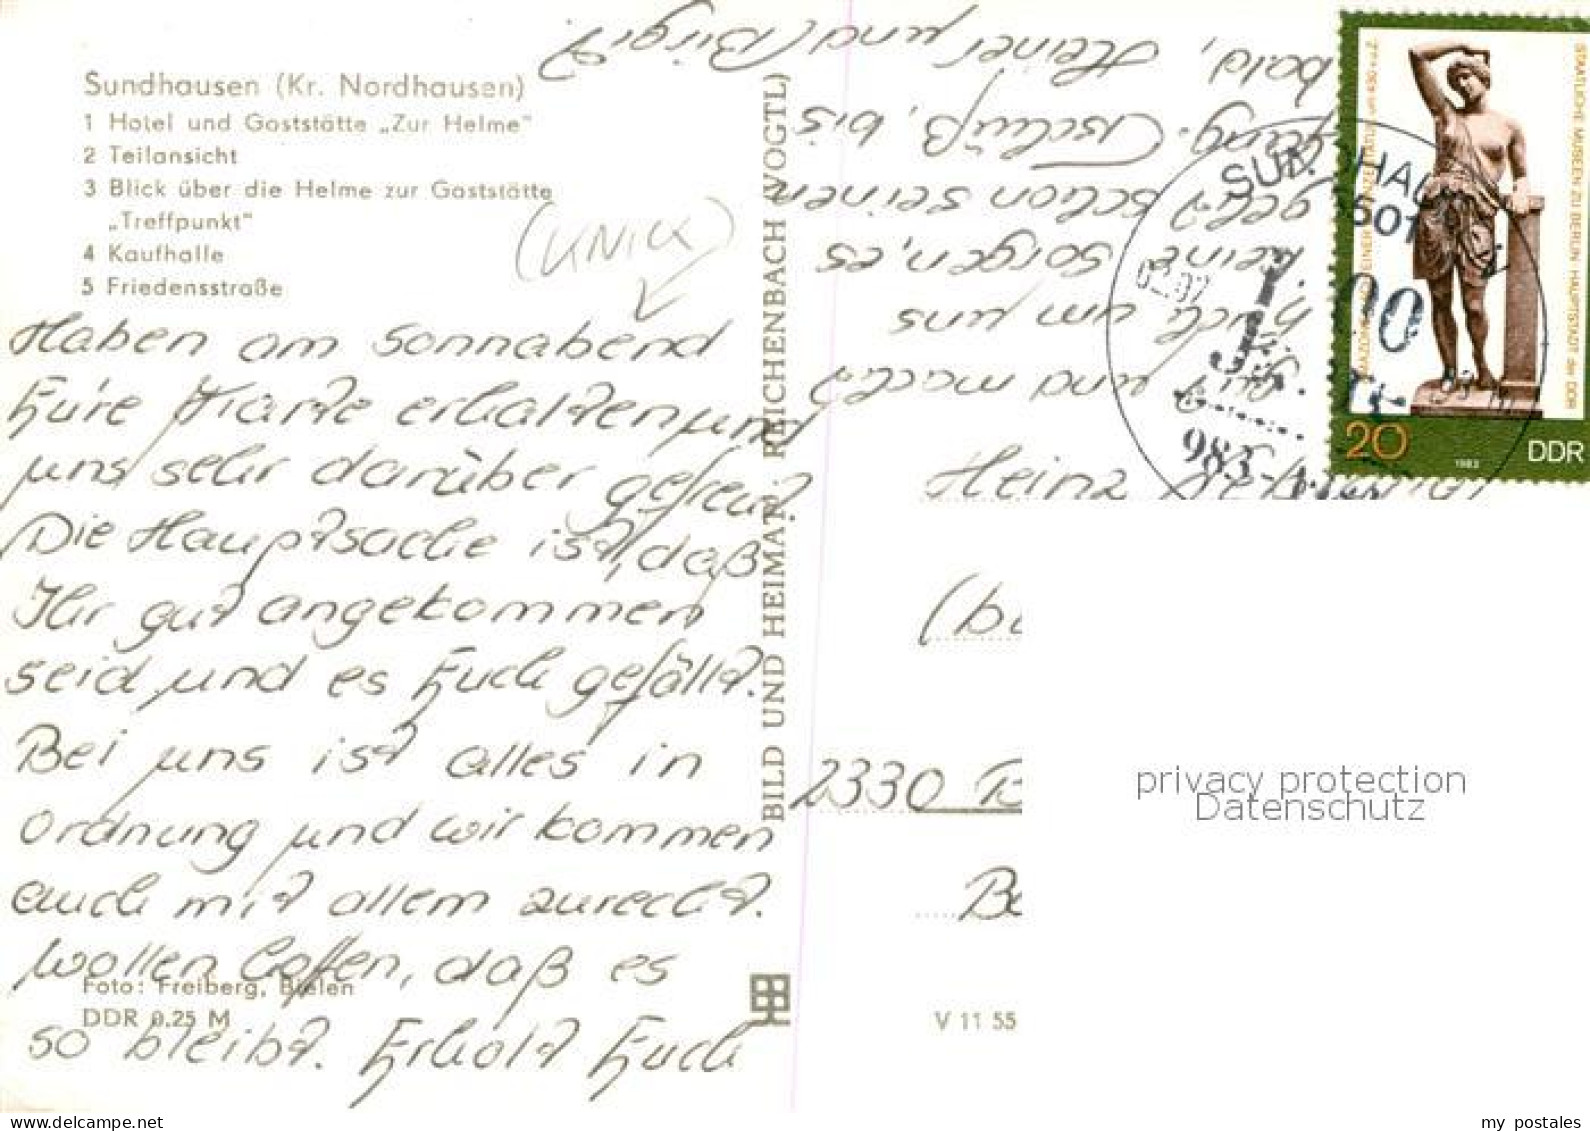 Sundhausen (Kr. Nordhausen)
1 Hotel und Gaststätte „Zur Helme"
2 Teilansicht
3 Blick über die Helme zur Gaststätte
„Treffpunkt"
4 Kaufhalle
5 Friedensstraße
(KNICK)
Haben am Sonnabend
Eure Karte erhalten und
uns sehr darüber gefreut.
Die Hauptsache ist, daß
Ihr gut angekommen
seid und es Euch gefällt.
Bei uns ist alles in
Ordnung und wir kommen
auch mit allem zurecht.
Wollen hoffen, daß es
so bleibt. Erholt Euch
gut und macht
Euch um uns
keine Sorgen, es
geht schon seinen
Gang. Tschüß, bis
bald, Heiner und Birgit.
Foto: Freiberg, Bielen
DDR 0.25 M
BILD UND HEIMAT REICHENBACH (VOGTL)
V 11 55
STAATLICHE MUSEEN ZU BERLIN · HAUPTSTADT der DDR
20
1983
DDR
Heinz
2330
privacy protection
Datenschutz
my_postcards
delcampe.net